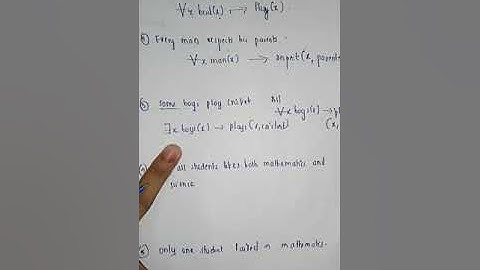 ∀x bird(x) → fly(x).
② Every man respects his parents.
∀x man(x) → respect(x, parent
③ Some boys play cricket All
∀x boys(x) →
∃x boys(x) → plays(x, cricket)
(x,
all students likes both mathematics and
science
⑤ only one student failed in mathematics.